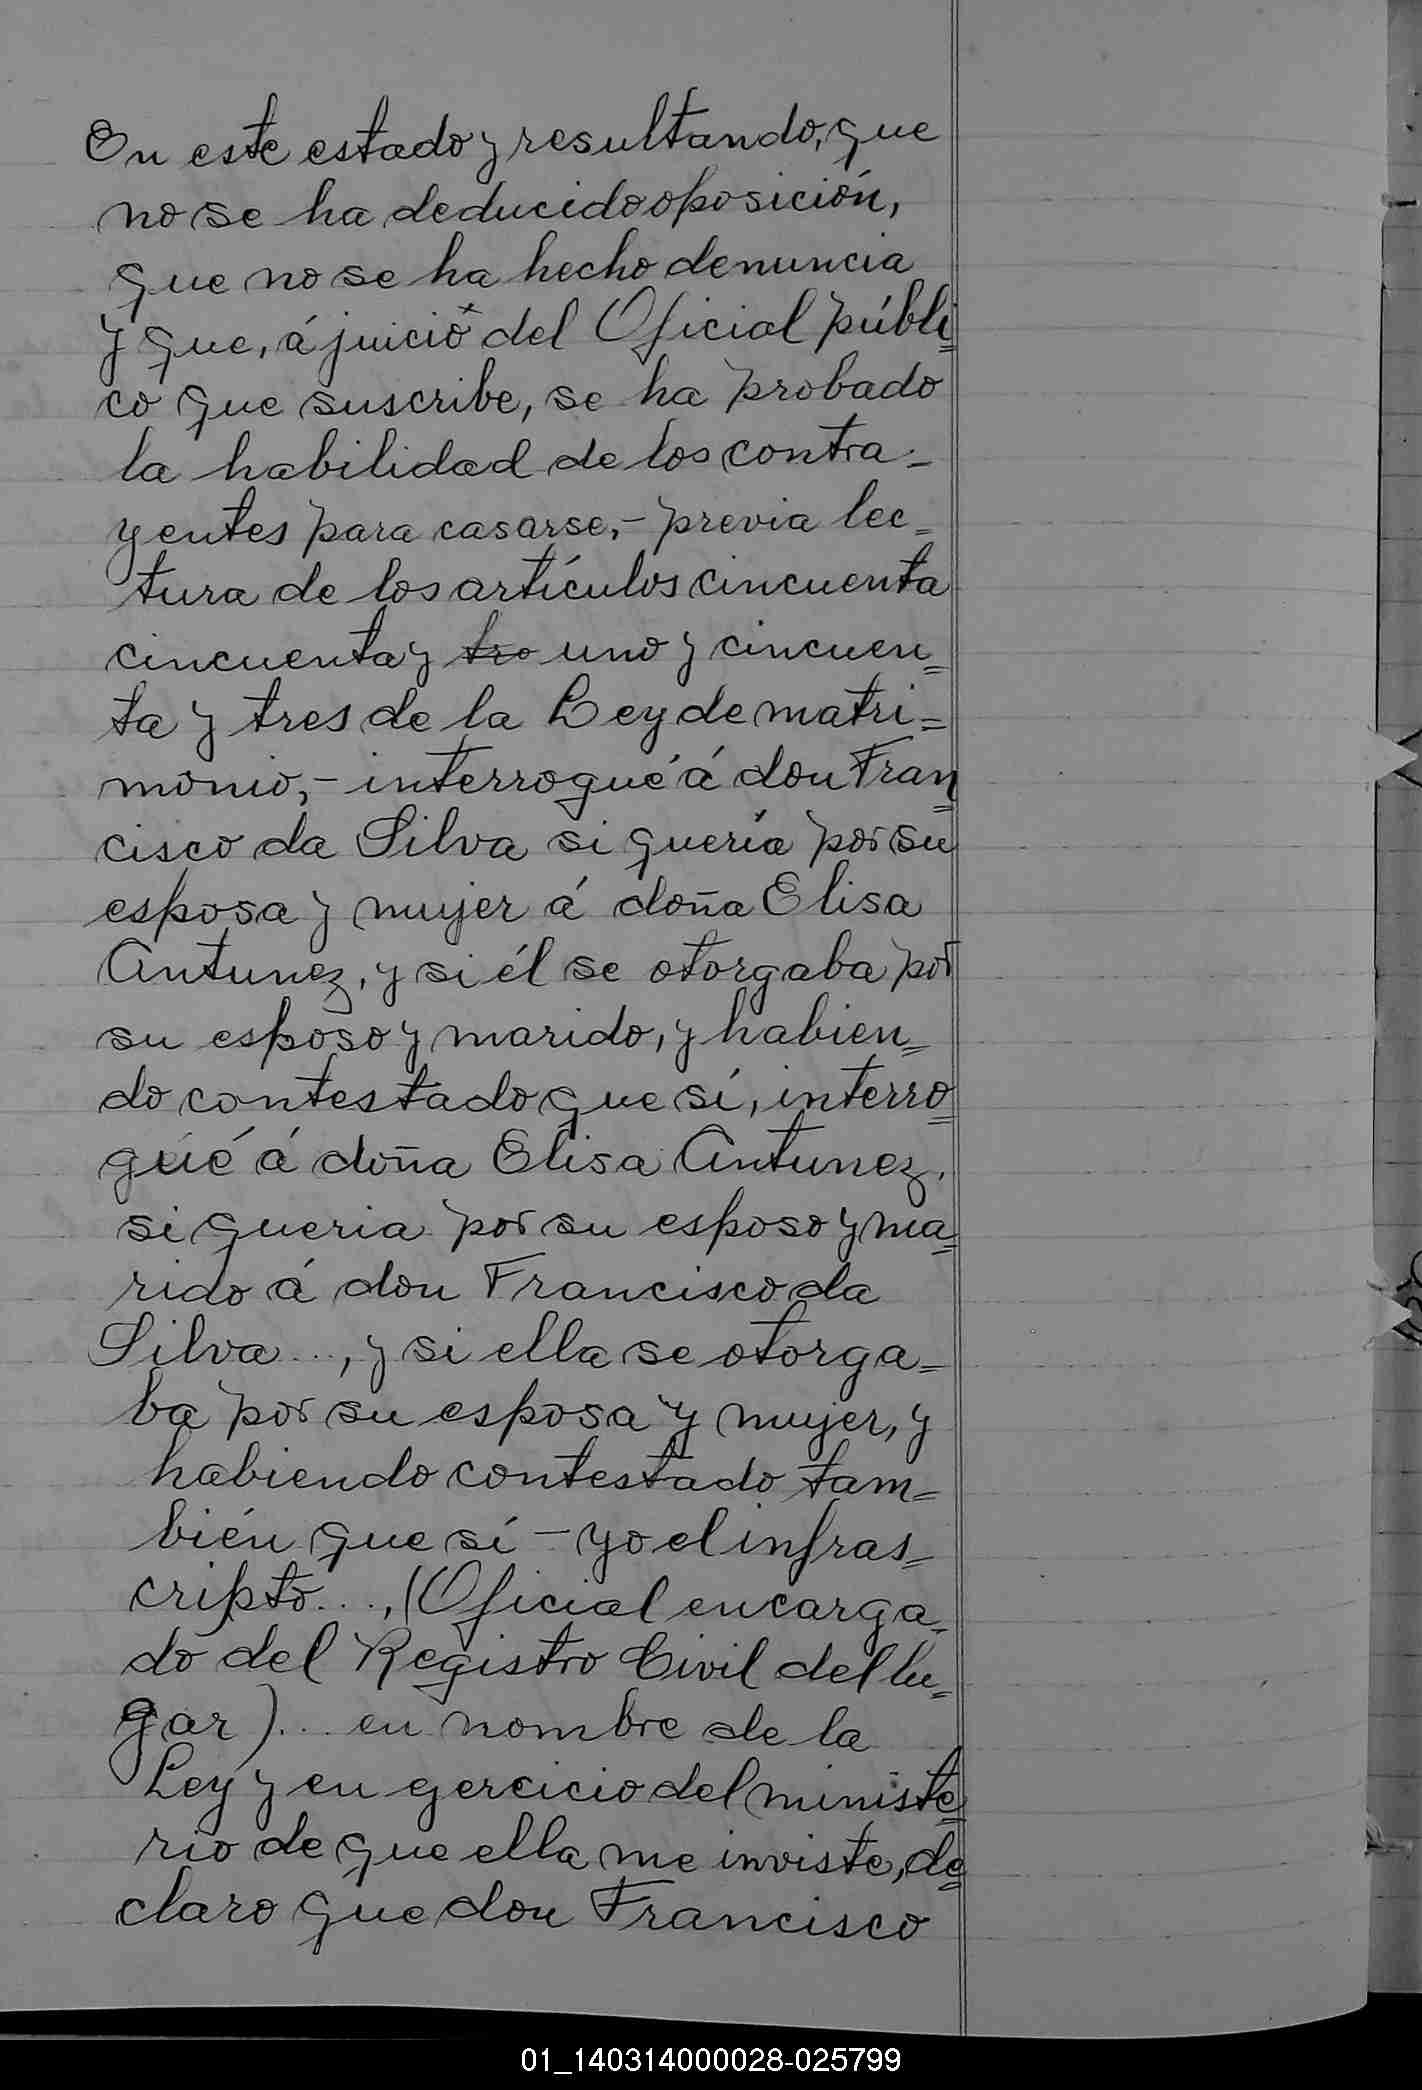 En este estado y resultando, que
no se ha deducido oposición,
que no se ha hecho denuncia
y que, á juicio del Oficial públi=
co que suscribe, se ha probado
la habilidad de los contra=
yentes para casarse,- previa lec=
tura de los artículos cincuenta
cincuenta y tro uno y cincuen=
ta y tres de la Ley de matri=
monio,- interrogué á don Fran=
cisco da Silva si quería por su
esposa y mujer á doña Elisa
Antunez, y si él se otorgaba por
su esposo y marido, y habien=
do contestado que sí, interro=
gué á doña Elisa Antunez,
si queria por su esposo y ma=
rido á don Francisco da
Silva..., y si ella se otorga=
ba por su esposa y mujer, y
habiendo contestado tam=
bién que sí - yo el infras=
cripto..., (Oficial encarga=
do del Registro Civil del lu=
gar)... en nombre de la
Ley y en gercicio del ministe=
rio de que ella me inviste, de=
claro que don Francisco
01_140314000028-025799